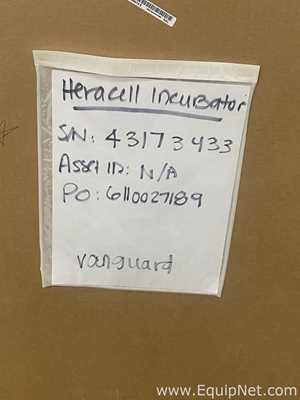 Heracell Incubator
S/N: 43173433
Asset ID: N/A
PO: 6110027189
vanguard
www.EquipNet.com